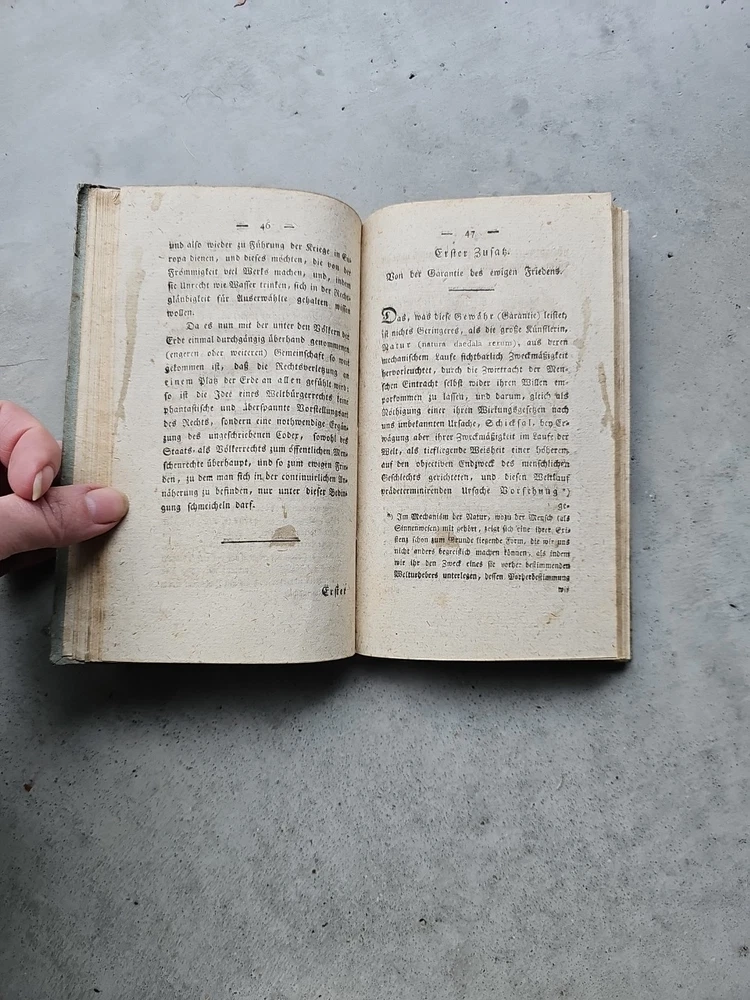 — 46 —
und also wieder zu Führung der Kriege in Eu-
ropa dienen, und dieses möchten, die von der
Frömmigkeit viel Werks machen, und, indem
sie Unrecht wie Wasser trinken, sich in der Recht-
gläubigkeit für Auserwählte gehalten wissen
wollen.
Da es nun mit der unter den Völkern der
Erde einmal durchgängig überhand genommenen
(engeren oder weiteren) Gemeinschaft so weit
gekommen ist, daß die Rechtsverletzung an
einem Platz der Erde an allen gefühlt wird:
so ist die Idee eines Weltbürgerrechts keine
phantastische und überspannte Vorstellungsart
des Rechts, sondern eine nothwendige Ergän-
zung des ungeschriebenen Codex, sowohl des
Staats- als Völkerrechts zum öffentlichen Men-
schenrechte überhaupt, und so zum ewigen Frie-
den, zu dem man sich in der continuirlichen An-
näherung zu befinden, nur unter dieser Bedin-
gung schmeicheln darf.
Erster
— 47 —
Erster Zusatz.
Von der Garantie des ewigen Friedens.
Das, was diese Gewähr (Garantie) leistet,
ist nichts Geringeres, als die große Künstlerin,
Natur (natura daedala rerum), aus deren
mechanischem Laufe sichtbarlich Zweckmäßigkeit
hervorleuchtet, durch die Zwietracht der Men-
schen Eintracht selbst wider ihren Willen em-
porkommen zu lassen, und darum, gleich als
Nöthigung einer ihren Wirkungsgesetzen nach
uns unbekannten Ursache, Schicksal, bey Er-
wägung aber ihrer Zweckmäßigkeit im Laufe der
Welt, als tiefliegende Weisheit einer höheren,
auf den objectiven Endzweck des menschlichen
Geschlechts gerichteten, und diesen Weltlauf
prädeterminirenden Ursache Vorsehung *)
ge-
*) Im Mechanism der Natur, wozu der Mensch (als
Sinnenwesen) mit gehört, zeigt sich eine ihrer Exi-
stenz schon zum Grunde liegende Form, die wir uns
nicht anders begreiflich machen können, als indem
wir ihr den Zweck eines sie vorher bestimmenden
Welturhebers unterlegen, dessen Vorherbestimmung
wir